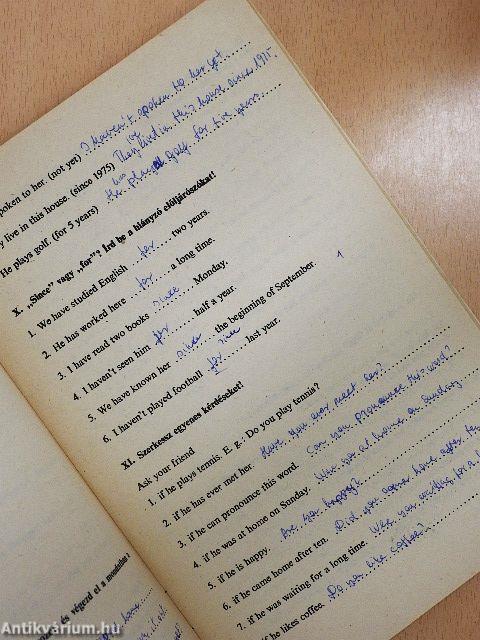 poken to her. (not yet) I haven't spoken to her yet
y live in this house. (since 1975) They've lived in this house since 1975.
He plays golf. (for 5 years) He has played golf for five years.
X. „Since” vagy „for”? Írd be a hiányzó elöljárószókat!
1. We have studied English for two years.
2. He has worked here for a long time.
3. I have read two books since Monday.
4. I haven't seen him for half a year.
5. We have known her since the beginning of September.
6. I haven't played football for since last year.
XI. Szerkessz egyenes kérdéseket!
Ask your friend
1. if he plays tennis. E. g.: Do you play tennis?
2. if he has ever met her. Have you ever met her?
3. if he can pronounce this word. Can you pronounce this word?
4. if he was at home on Sunday. at home on Sunday
5. if he is happy. Are you happy?
6. if he came home after ten. Did you come home after
7. if he was waiting for a long time. Were you waiting for a
if he likes coffee. Do you like coffee?
és végezd el a
Antikvárium.hu